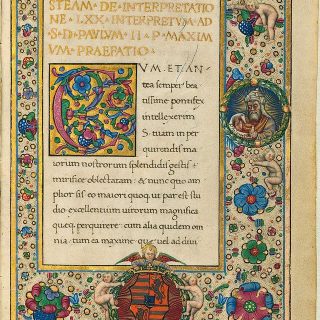 STEAM· DE· INTERPRETATIO
NE· LXX· INTERPRETUM· AD
·S· D· PAULUM· II· P· MAXIM
UM· PRAEFATIO·
CUM· ET· AN‑
tea semper bea
tissime pontifex
intellexerim
S· tuam in per
quirendis ma
iorum nostrorum splendidis gestis
mirifice oblectaram: & nunc quo am
plior sis eo maiori quoq; ut par est stu
dio excellentium uirorum magnifica
queq; perquirere: cum alia quidem om
nia tum ea maxime que uel ad diui